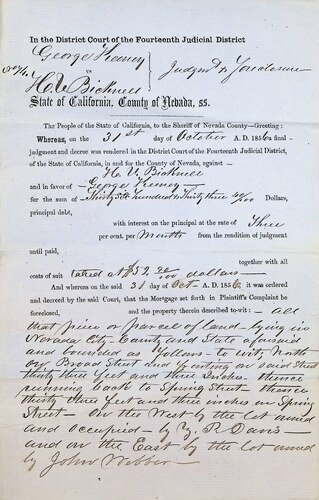 In the District Court of the Fourteenth Judicial District
George Keeney
vs
Judgmt & Foreclosure
H. U. Bicknell
State of California, County of Nevada, ss.
The People of the State of California, to the Sheriff of Nevada County—Greeting:
Whereas, on the 31st day of October A. D. 1856 final
judgment and decree was rendered in the District Court of the Fourteenth Judicial District,
of the State of California, in and for the County of Nevada, against
H. U. Bicknell
and in favor of George Keeney
for the sum of Thirty Six Hundred & Thirty three 40/100 Dollars,
principal debt,
with interest on the principal at the rate of Three
per cent. per Month from the rendition of judgment
until paid,
together with all
costs of suit taxed at $52 20/100 dollars
And whereas on the said 31 day of Oct A. D. 1856, it was ordered
and decreed by the said Court, that the Mortgage set forth in Plaintiff's Complaint be
foreclosed, and the property therein described to-wit: all
that piece or parcel of land lying in
Nevada City County and State aforesaid
and bounded as follows to wit, North
by Broad Street and fronting on said Street
thirty three feet and three inches thence
running back to Spring Street thence
thirty three feet and three inches on Spring
Street — On the West by the lot owned
and occupied by Z. P. Davis
and on the East by the lot owned
by John Webber